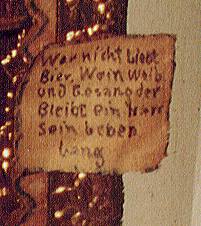 War nicht Liebt
Bier, Wein Weib
und Gesang der
Bleibt ein Narr
Sein Leben
Lang